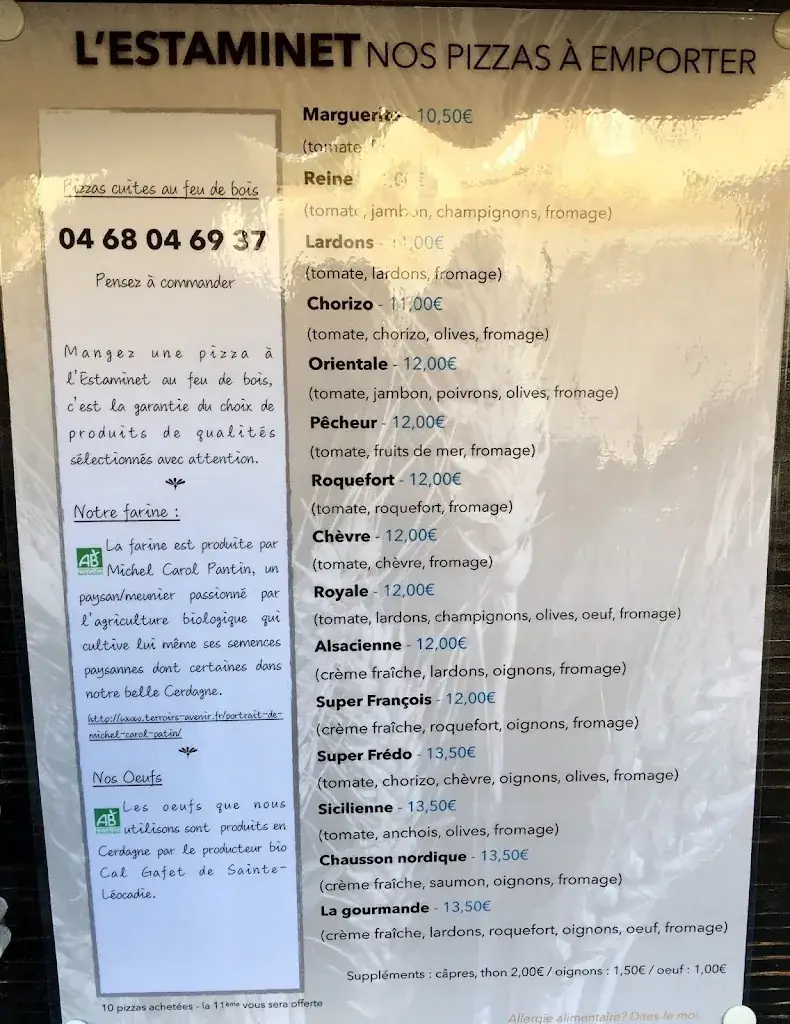 L'ESTAMINET NOS PIZZAS À EMPORTER
Pizzas cuites au feu de bois
04 68 04 69 37
Pensez à commander
Mangez une pizza à
l'Estaminet au feu de bois,
c'est la garantie du choix de
produits de qualités
sélectionnés avec attention.
Notre farine :
AB La farine est produite par
Michel Carol Pantin, un
paysan/meunier passionné par
l'agriculture biologique qui
cultive lui même ses semences
paysannes dont certaines dans
notre belle Cerdagne.
http://www.terroirs-avenir.fr/portrait-de-
michel-carol-patin/
Nos Oeufs
AB Les oeufs que nous
utilisons sont produits en
Cerdagne par le producteur bio
Cal Gafet de Sainte-
Léocadie.
10 pizzas achetées - la 11ème vous sera offerte
Marguerite - 10,50€
(tomate
Reine
(tomate, jambon, champignons, fromage)
Lardons - 11,00€
(tomate, lardons, fromage)
Chorizo - 11,00€
(tomate, chorizo, olives, fromage)
Orientale - 12,00€
(tomate, jambon, poivrons, olives, fromage)
Pêcheur - 12,00€
(tomate, fruits de mer, fromage)
Roquefort - 12,00€
(tomate, roquefort, fromage)
Chèvre - 12,00€
(tomate, chèvre, fromage)
Royale - 12,00€
(tomate, lardons, champignons, olives, oeuf, fromage)
Alsacienne - 12,00€
(crème fraîche, lardons, oignons, fromage)
Super François - 12,00€
(crème fraîche, roquefort, oignons, fromage)
Super Frédo - 13,50€
(tomate, chorizo, chèvre, oignons, olives, fromage)
Sicilienne - 13,50€
(tomate, anchois, olives, fromage)
Chausson nordique - 13,50€
(crème fraîche, saumon, oignons, fromage)
La gourmande - 13,50€
(crème fraîche, lardons, roquefort, oignons, oeuf, fromage)
Suppléments : câpres, thon 2,00€ / oignons : 1,50€ / oeuf : 1,00€
Allergie alimentaire? Dites-le moi